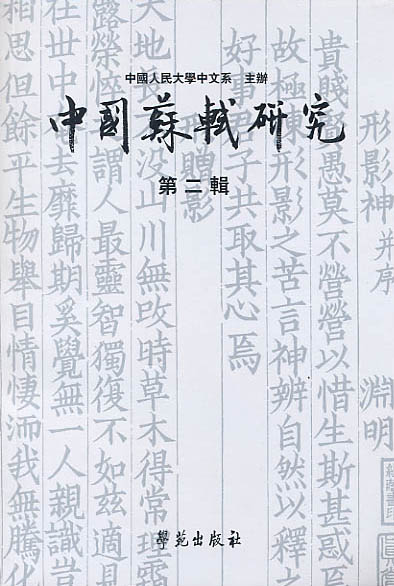 中國人民大學中文系 主辦
中國蘇軾研究
第二輯
形影神 并序 淵明
貴賤愚莫不營營以惜生斯甚惑焉
故極形影之苦言神辨自然以釋之
好事子共取其心焉
贈影
天地没山川無改時草木得常理霜
露榮悴謂人最靈智獨復不如茲適見
在世中去靡歸期奚覺無一人親識豈
相思但餘平生物舉目情悽洏我無騰化
學苑出版社